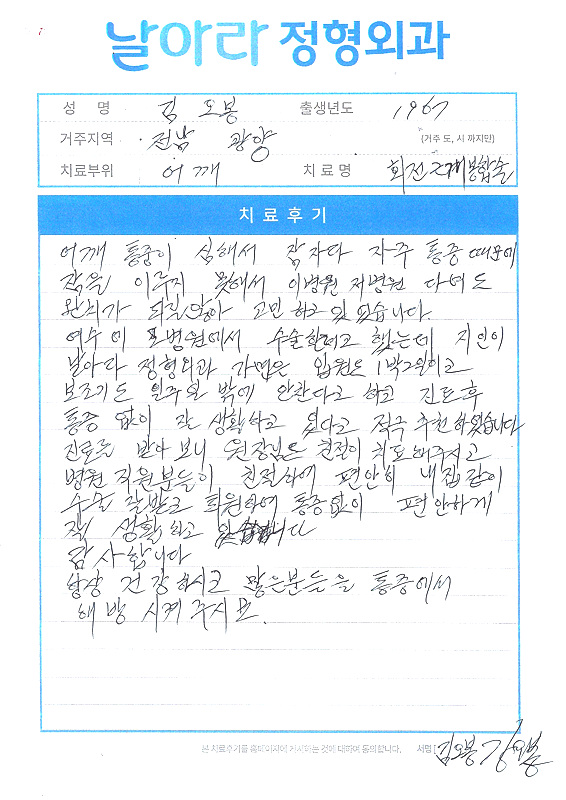 날아라 정형외과
성 명 김도봉 출생년도 1967
거주지역 전남 광양 (거주 도, 시 까지만)
치료부위 어깨 치료명 회전근개봉합술
치료후기
어깨 통증이 심해서 잠자다 자주 통증 때문에
잠을 이루지 못해서 이병원 저병원 다녀도
완치가 되질않아 고민하고 있었습니다.
여수에 모병원에서 수술할려고 했는데 지인이
날아라 정형외과 가면은 입원도 1박2일이고
보조기도 일주일 밖에 안찬다고 하고 진료후
통증 없이 잘 생활하고 있다고 적극 추천하였습니다
진료를 받아보니 원장님도 친절이 치료해주시고
병원 직원분들이 친절하여 편안히 내집같이
수술 잘받고 퇴원하여 통증없이 편안하게
잘 생활하고 있습니다
감사합니다
항상 건강하시고 많은분들을 통증에서
해방 시켜 주시고.
본 치료후기를 홈페이지에 게시하는 것에 대하여 동의합니다. 서명 김도봉